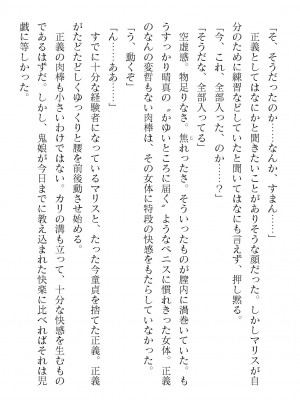 「そ、そうだったのか……なんか、すまん……」
　正義としてはなにかと聞きたいことがありそうな顔だった。しかしマリスが自
分のために練習などしていたと聞いてはなにも言えず、押し黙る。
「今、これ、全部入った、のか……？」
「そうだな、全部入ってる」
　空虚感。物足りなさ。焦れったさ。そういったものが膣内に渦巻いていた。も
うすっかり晴真の“かゆいところに届く”ようなペニスに慣れきった女体。正義
のなんの変哲もない肉棒は、その女体に特段の快感をもたらしていなかった。
「う、動くぞ」
「ん……ああ……」
　すでに十分な経験者になっているマリスと、たった今童貞を捨てた正義。正義
がたどたどしくゆっくりと腰を前後動させ始める。
　正義の肉棒も小さいわけではない。カリの溝も立って、十分な快感を生むもの
であるはずだ。しかし、鬼娘が今日までに教え込まれた快楽に比べればそれは児
戯に等しかった。